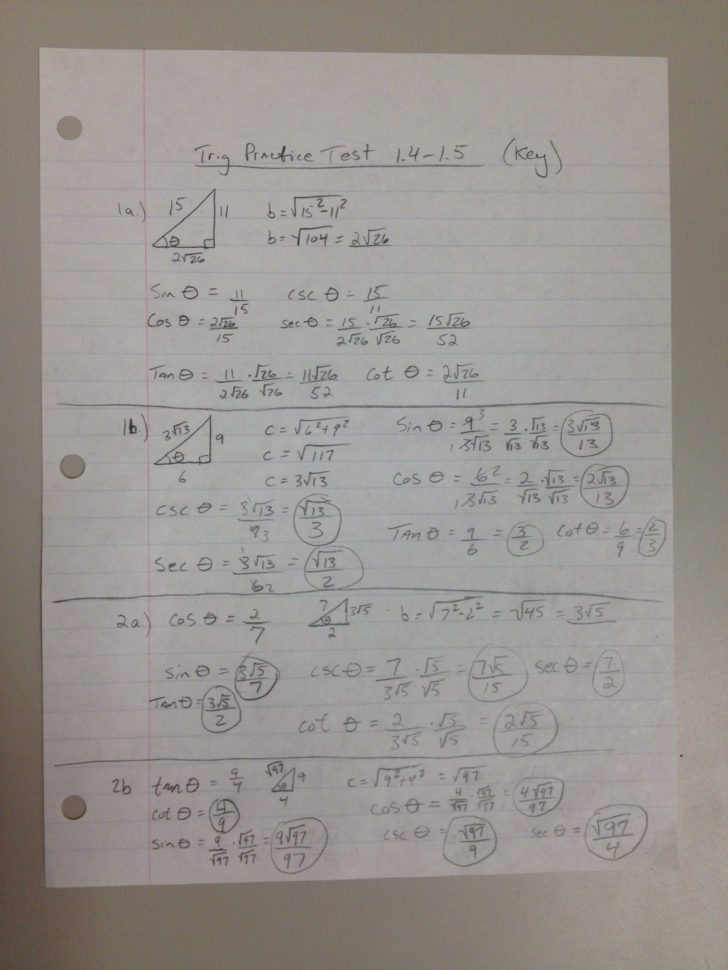 Trig Practice Test 1.4-1.5 (Key)
1a.) 15 11 θ 2√26 b = √15² - 11²
b = √104 = 2√26
Sin θ = 11/15 csc θ = 15/11
Cos θ = 2√26/15 sec θ = 15/2√26 · √26/√26 = 15√26/52
Tan θ = 11/2√26 · √26/√26 = 11√26/52 Cot θ = 2√26/11
1b.) 3√13 9 θ 6 c = √6²+9² Sin θ = 9³/₁3√13 = 3/√13 · √13/√13 = 3√13/13
c = √117
c = 3√13 Cos θ = 6²/₁3√13 = 2/√13 · √13/√13 = 2√13/13
csc θ = ¹3√13/9₃ = √13/3 Tan θ = 9/6 = 3/2 Cot θ = 6/9 = 2/3
Sec θ = ¹3√13/6₂ = √13/2
2a.) cos θ = 2/7 7 3√5 θ 2 b = √7²-2² = √45 = 3√5
sin θ = 3√5/7 csc θ = 7/3√5 · √5/√5 = 7√5/15 sec θ = 7/2
Tan θ = 3√5/2
cot θ = 2/3√5 · √5/√5 = 2√5/15
2b tan θ = 9/4 √97 9 θ 4 c = √9²+4² = √97
cot θ = 4/9 cos θ = 4/√97 · √97/√97 = 4√97/97
sin θ = 9/√97 · √97/√97 = 9√97/97 csc θ = √97/9 sec θ = √97/4